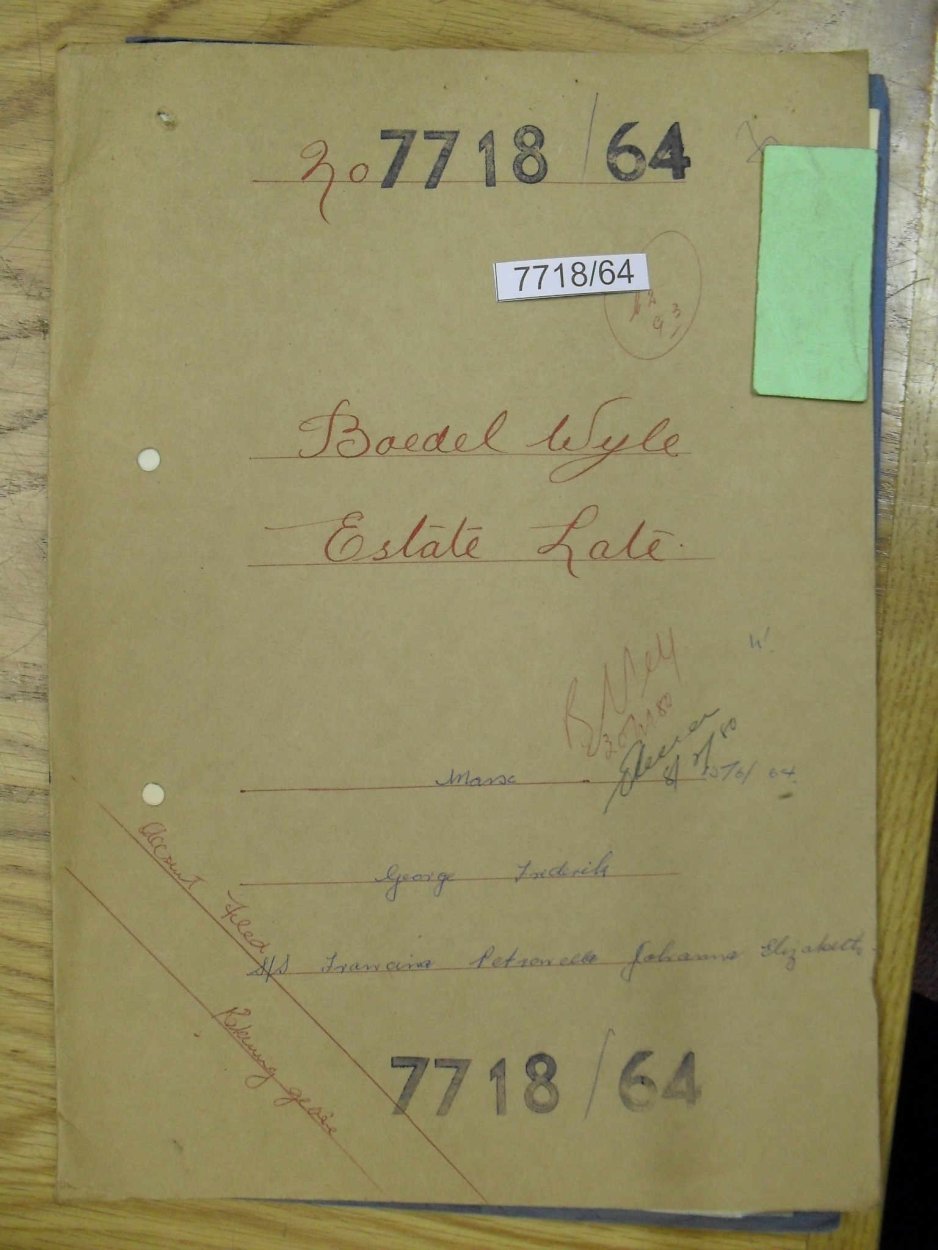 No 7718/64
7718/64
Boedel Wyle
Estate Late.
Marx
15/6/64
George Frederik
S/S Francina Petronella Johanna Elizabeth
Account Filed
Rekening gesien
7718/64